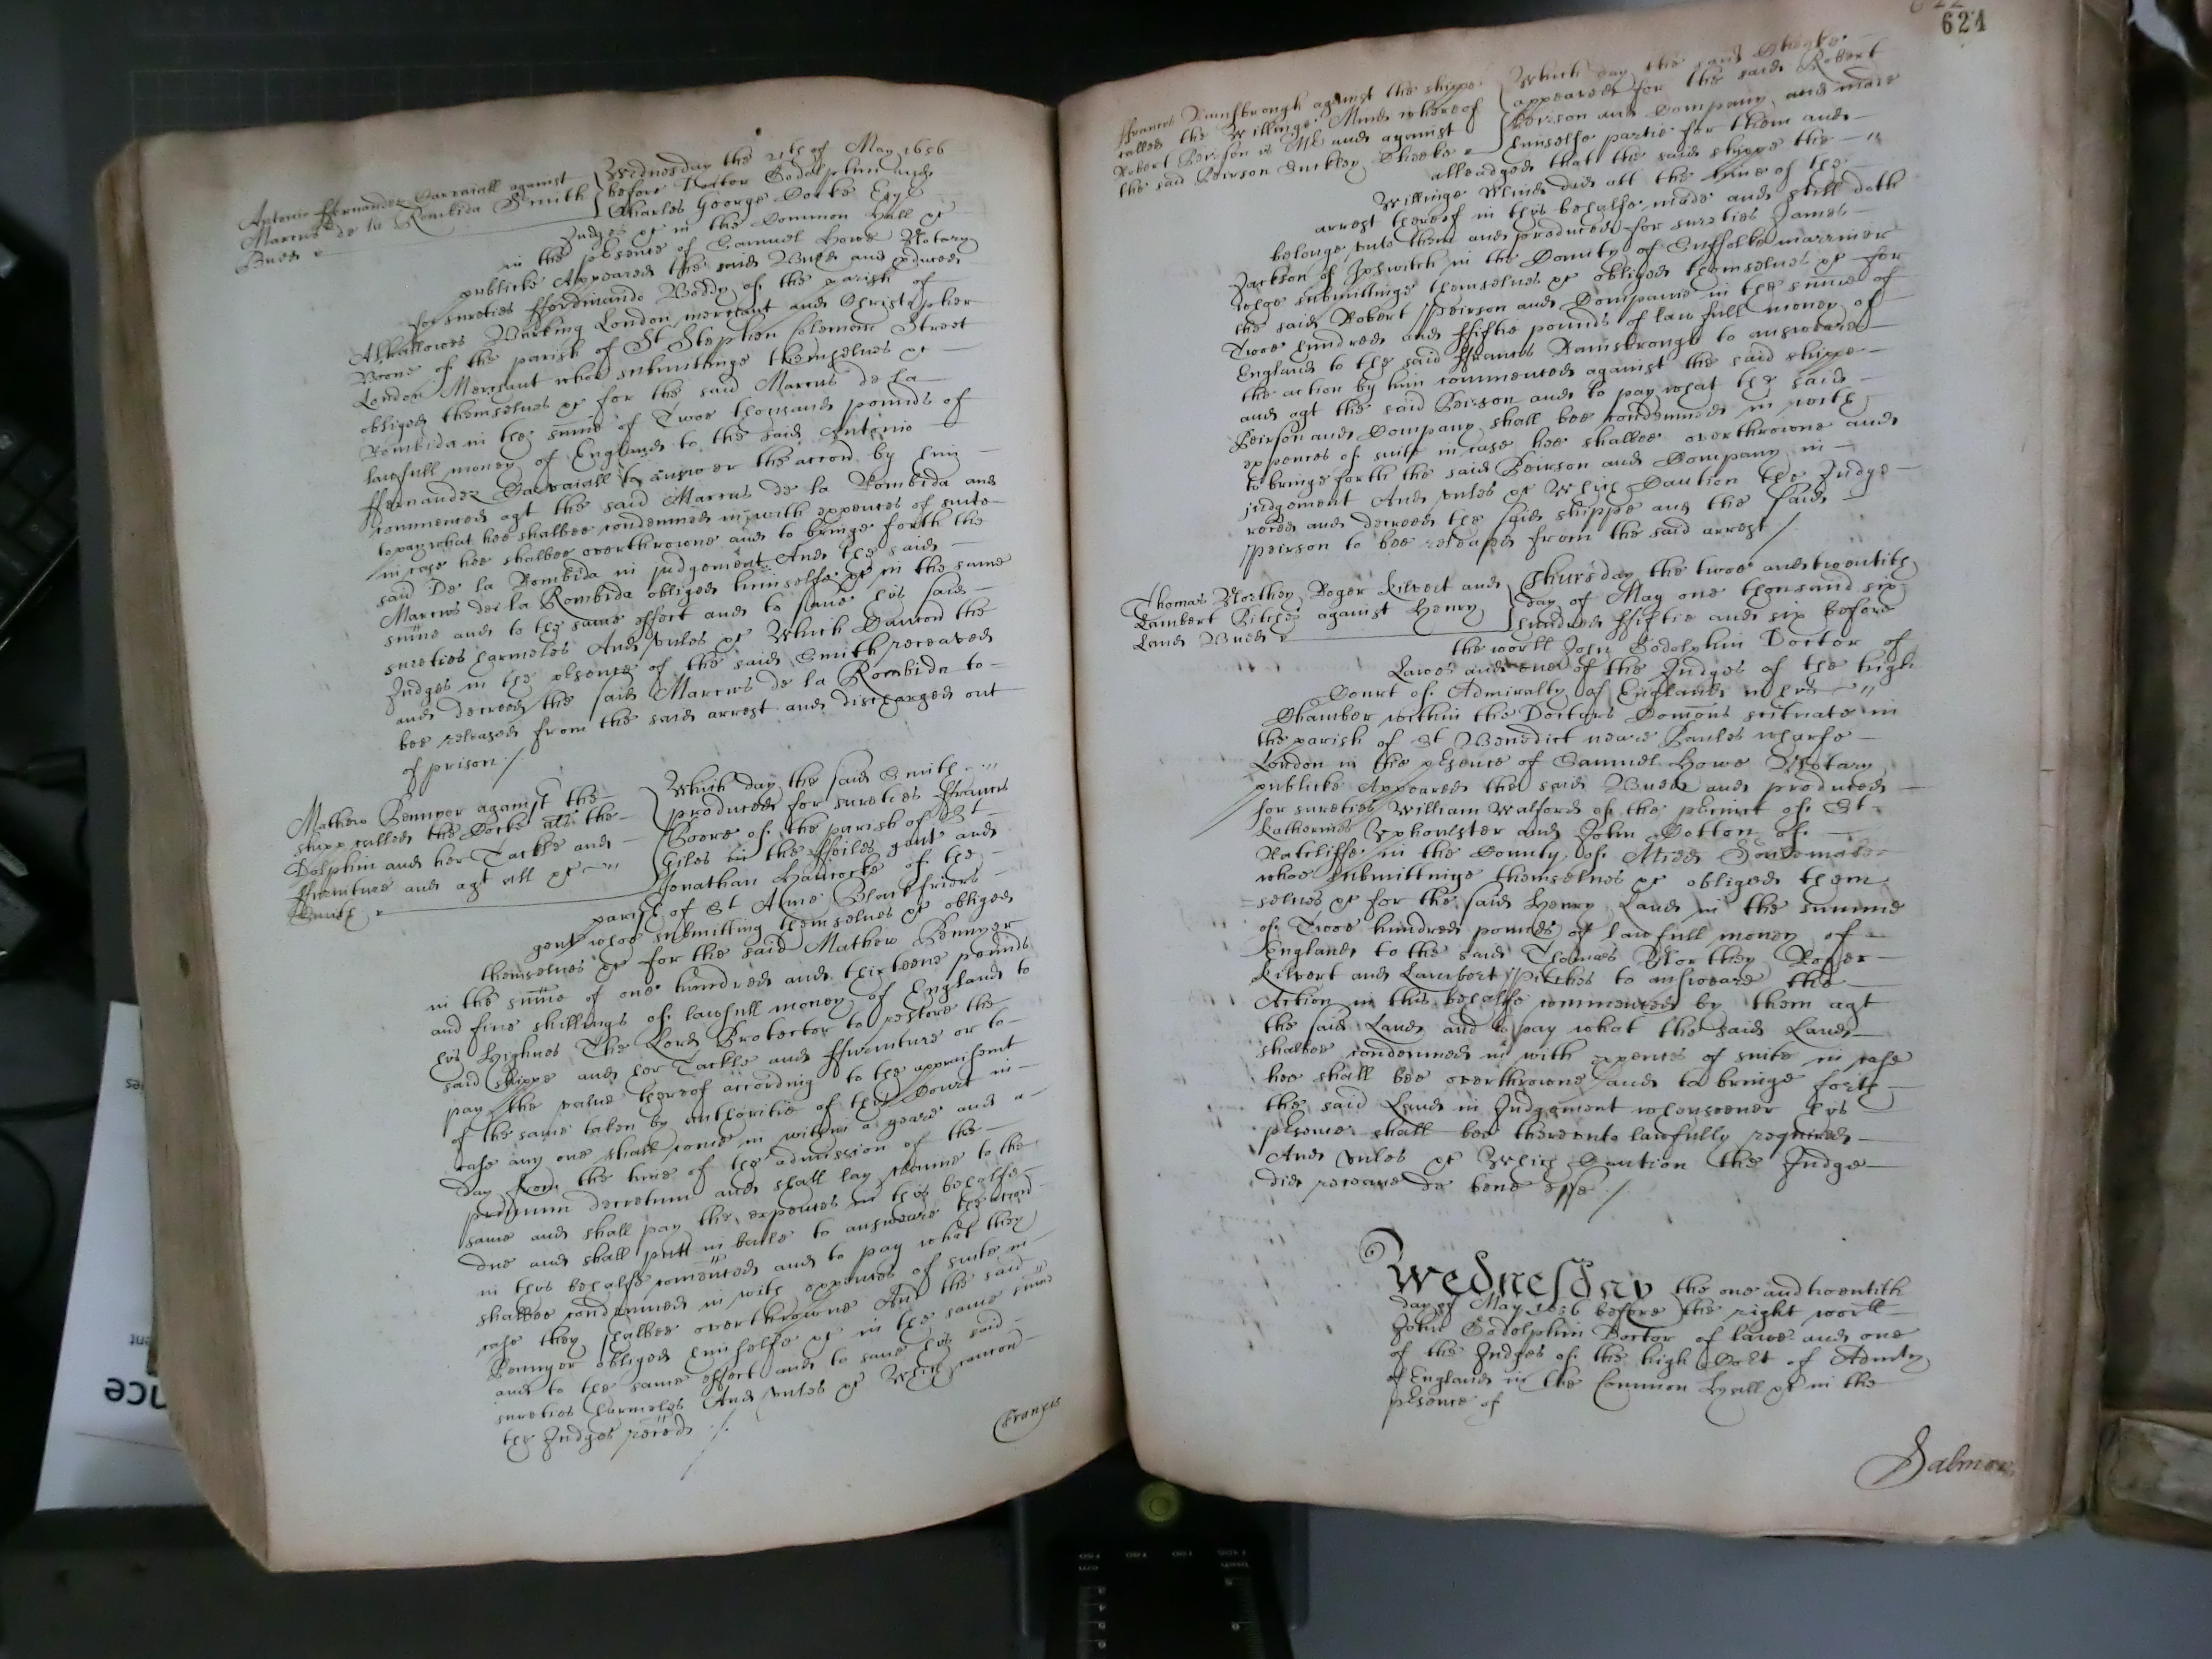 Antonio Fernandez Carvaiall against
Marcus de la Rombida Smith
Budd
Wednesday the 21th of May 1656
before Doctor Godolphin and
Charles George Cocke Esqr
Judges &c in the Common Hall &c
in the presence of Samuel Howe Notary
publicke Appeared the said Budd and produced
for sureties Fferdinando Boddy of the parish of
Alhallowes Barking London merchant and Christopher
Boone of the parish of St Stephen Coleman Street
London Merchant whoe submittinge themselves &c
obliged themselves &c for the said Marcus de la
Rombida in the summe of Twoe thousand pounds of
lawfull money of England to the said Antonio
Ffernandez Carvaiall to answer the accon by him
commenced agt the said Marcus de la Rombida and
to pay what hee shalbee condemned in with expences of suite
in case hee shalbee overthrowne and to bringe forth the
said De la Rombida in judgement And the said
Marcus de la Rombida obliged himselfe &c in the same
summe and to the same effect and to save his said
sureties harmeles And unles &c Which Caution the
Judges in the presence of the said Smith received
and decreed the said Marcus de la Rombida to
bee released from the said arrest and discharged out
of prison:/
Mathew Bennyer against the
shipp called the Cocke als the
Dolphin and her Tackle and
ffurniture and agt all &c
Smith
Which day the said Smith
produced for sureties Francis
Boere of the parish of St
Giles in the ffeilds gent and
Jonathan Hancocke of the
parish of St Anne Black friers
gent whoe submitting themselves &c obliged
themselves &c for the said Mathew Bennyer
in the summe of one hundred and thirteene pounds
and five shillings of lawfull money of England to
his Highnes The Lord Protector to restore the
said shippe and her Tackle and ffurniture or to
pay the value thereof according to the appraisemt
of the same taken by authoritie of this Court in
case any one shall come in within a yeare and a
day from the time of the admission of the
primum decretum and shall lay claime to the
same and shall pay the expences in this behalfe
due and shall putt in baile to answeare the accon
in this behalfe comenced and to pay what they
shalbee condemned in with expences of suite in
case they shalbee overthrowne And the said
Bennyer obliged himselfe &c in the same summe
and to the same effect and to save his said
sureties harmeles And unles &c Which caucon
the Judges received :/
Francis
621
Francis Ramsbrough against the shippe
called the Willinge Minde whereof
Robert Peirson is Mr and against
the said Peirson Suckley Cheeke
Which day the said Cheeke
appeared for the said Robert
Peirson and Company and made
himselfe partie for them and
alleadged that the said shippe the
Willinge Minde did att the time of the
arrest thereof in this behalfe made and still doth
belonge unto them and produced for sureties James
Jackson of Ipswitch in the County of Suffolke marriner
whoe submittinge themselves &c obliged themselves &c for
the said Robert Peirson and Companie in the summe of
Twoe hundred and ffiftie pounds of lawfull money of
England to the said Francis Ramsbrough to answeare
the action by him commenced against the said shippe
and agt the said Peirson and to pay what the said
Peirson and Company shall bee condemned in with
expences of suite in case hee shalbee overthrowne and
to bringe forth the said Peirson and Company in
judgement And unles &c Which Caution the Judge
reced and decreed the said shippe and the said
Peirson to bee released from the said arrest /.
Thomas Northey Roger Kilvert and
Lambert Pitches against Henry
Land Budd
Thursday the twoe and twentith
day of May one thousand six
hundred ffiftie and six before
the worll John Godolphin Doctor of
Lawes and one of the Judges of the high
Court of Admiralty of England in his
Chamber within the Doctors Comons scituate in
the parish of St Benedict neare Paules wharfe
London in the presence of Samuel Howe Notary
publicke Appeared the said Budd and produced
for sureties William Walford of the precinct of St
Katherines Upholster and John Cotton of
Ratcliffe in the County of Midd
whoe submittinge themselves &c obliged them
selves &c for the said Henry Land in the summe
of Twoe hundred pounds of lawfull money of
England to the said Thomas Northey Roger
Kilvert and Lambert Pitches to answeare the
Action in this behalfe commenced by them agt
the said Land and to pay what the said Land
shalbee condemned in with expences of suite in case
hee shall bee overthrowne and to bringe forth
the said Land in Judgement whensoever his
presence shall bee thereunto lawfully required
And unles &c Which Caution the Judge
did receave de bene esse /.
Wednesday the one and twentith
day of May 1656 before the right worll
John Godolphin Doctor of lawes and one
of the Judges of the high Cort of Admlty
of England in the Common Hall &c in the
presence of
Salmon